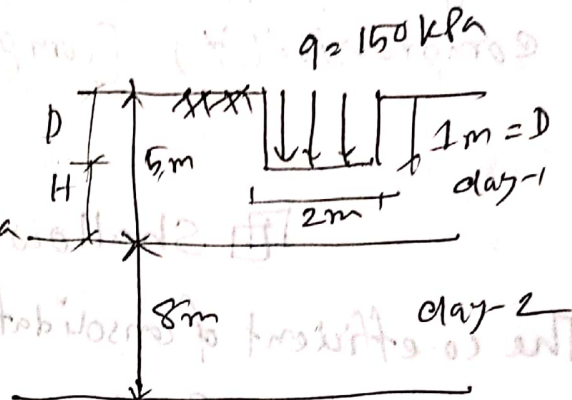 q = 150 kPa
D
H
5m
1m = D
clay-1
2m
8m
clay-2